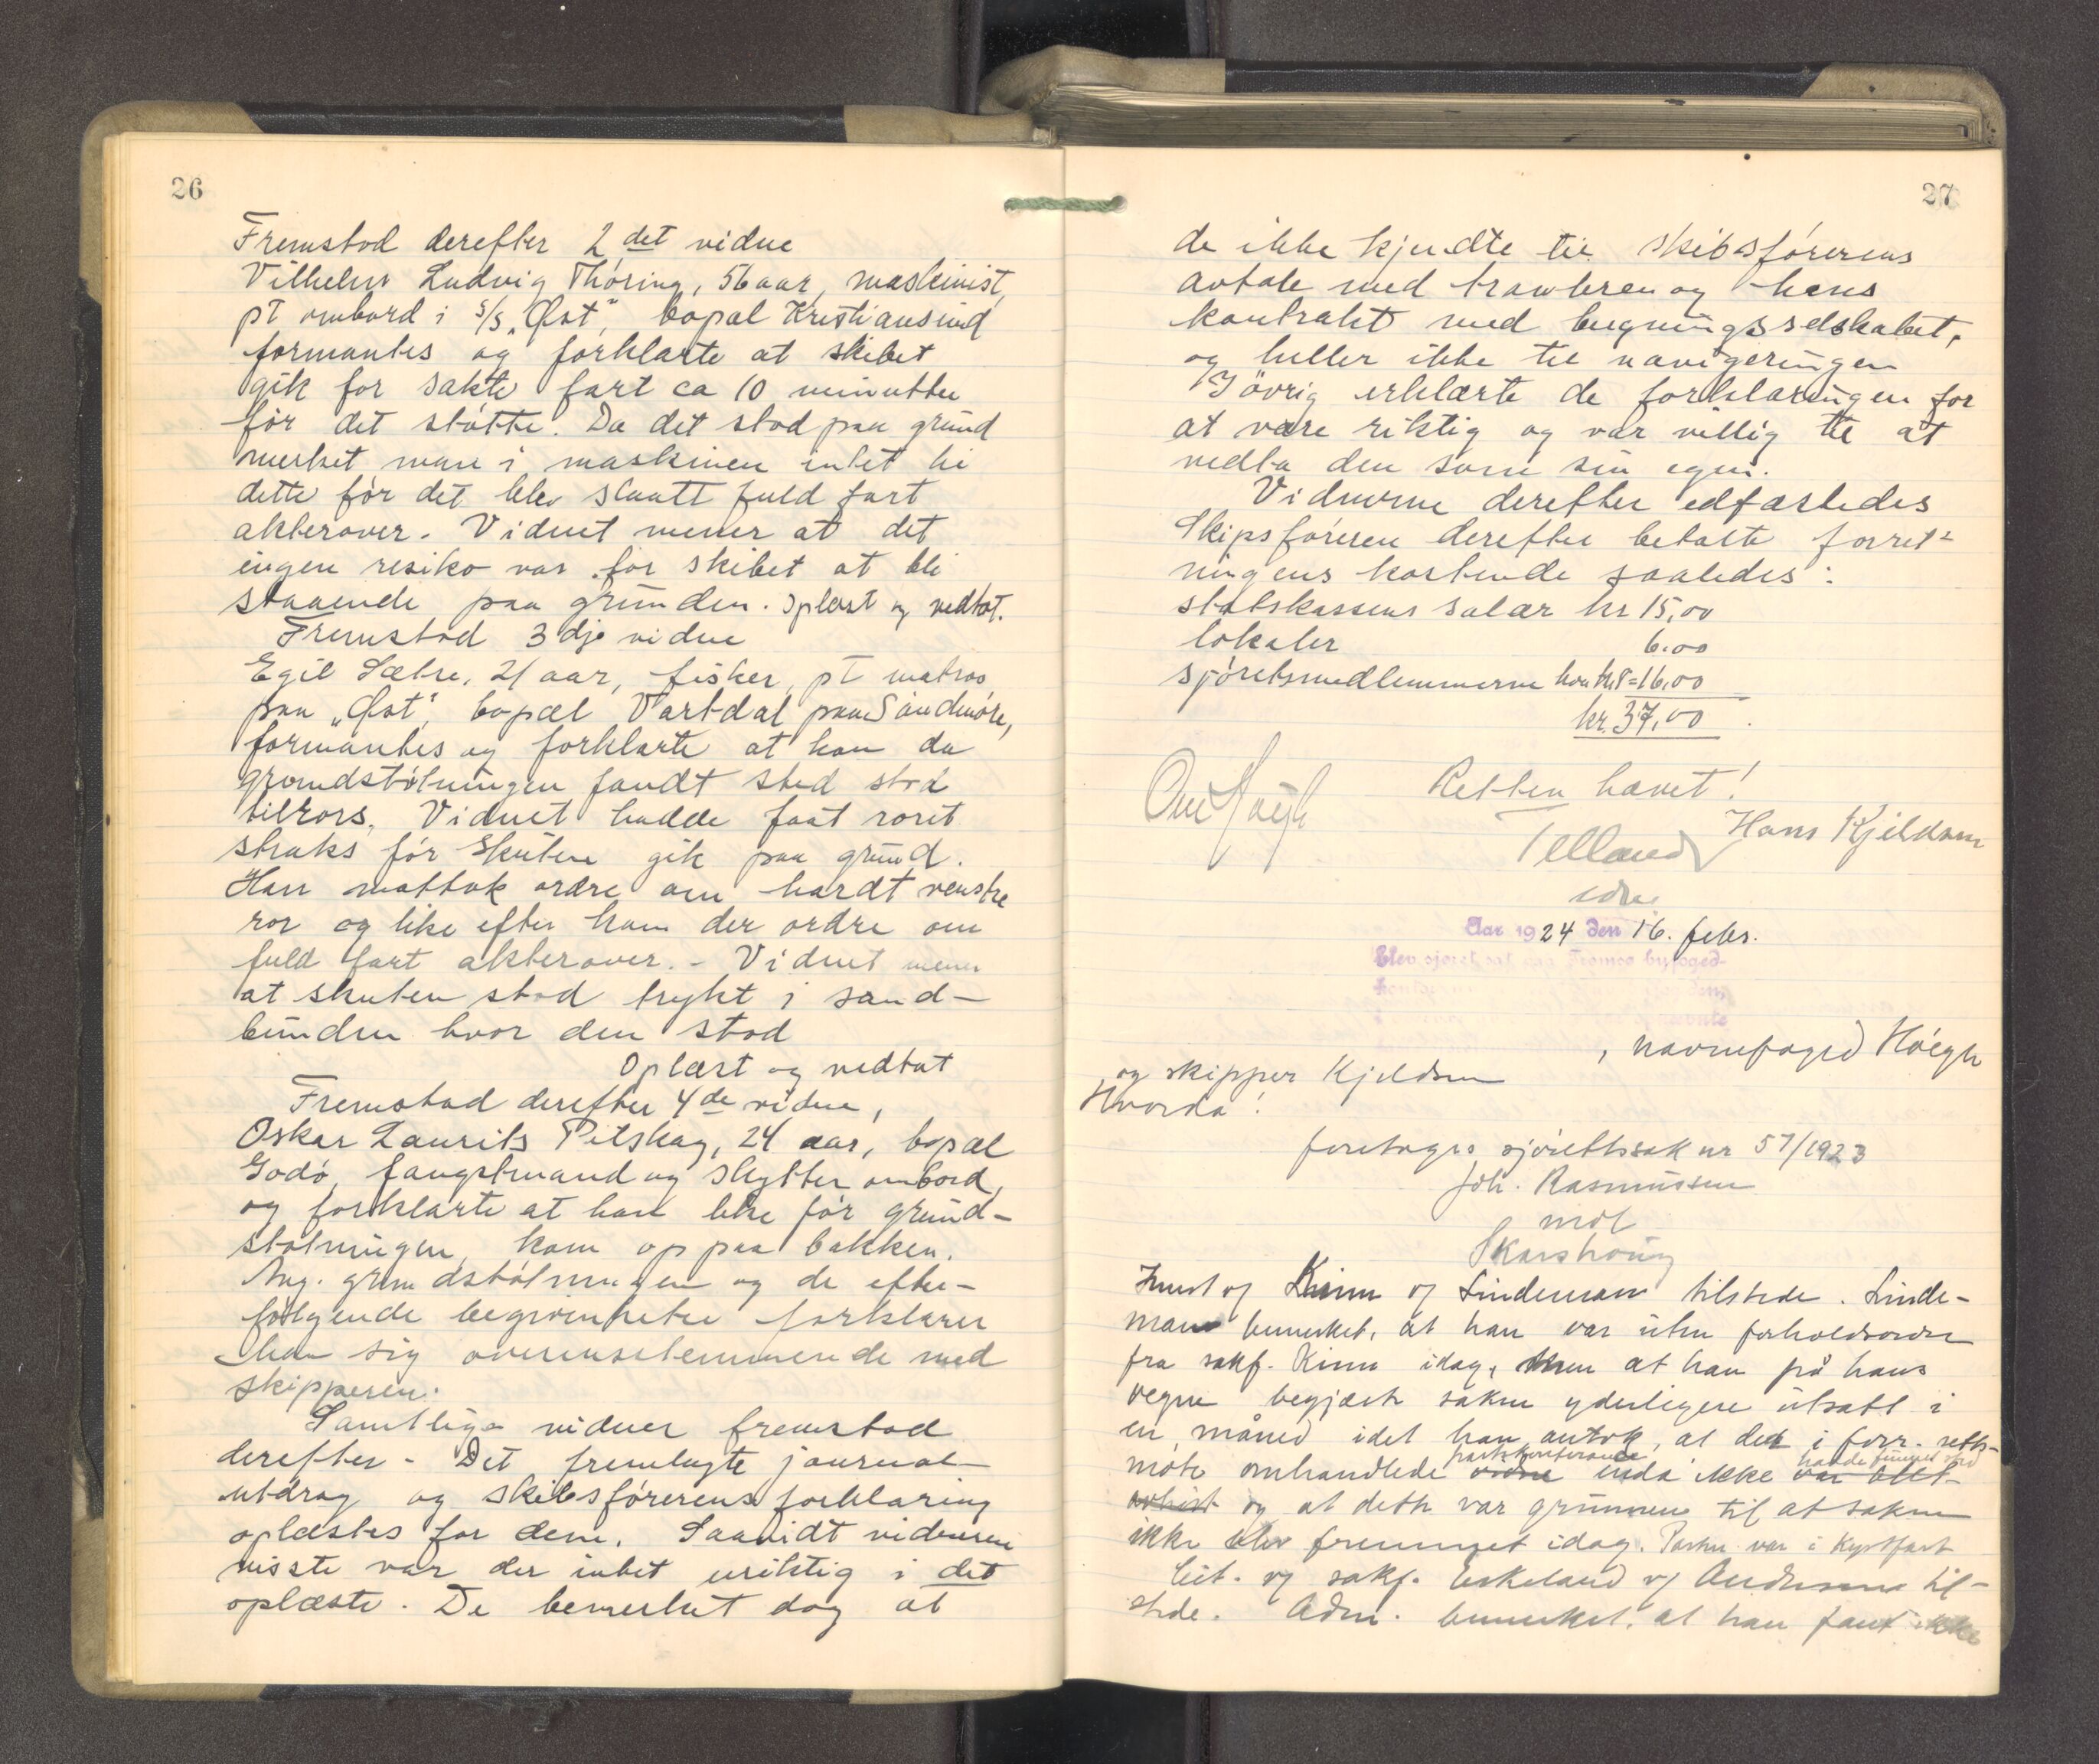 26
Fremstod derefter 2det vidne
Vilhelm Ludvig Thøring, 56 aar, maskinist,
pt ombord i s/s „Øst", bopæl Kristiansund
formantes og forklarte at skibet
gik for sakte fart ca 10 minutter
før det støtte. Da det stod paa grund
merket man i maskinen intet til
dette før det blev slaatt fuld fart
akterover. Vidnet mener at det
ingen resiko var for skibet at bli
staaende paa grunden. Oplæst og vedtat.
Fremstod 3dje vidne
Egil Sætre, 21 aar, fisker, pt matros
paa „Øst", bopæl Vartdal paa Søndmøre,
formantes og forklarte at han da
grundstøtningen fandt sted stod
tilrors. Vidnet hadde faat roret
straks før skuten gik paa grund.
Han mottok ordre om hardt venstre
ror og like efter kom der ordre om
fuld fart akterover. - Vidnet mener
at skuten stod trykt i sand-
bunden hvor den stod
Oplæst og vedtat
Fremstod derefter 4de vidne,
Oskar Laurits Pilskog, 24 aar, bopæl
Godø, fangstmand og skytter ombord,
og forklarte at han like før grund-
støtningen kom op paa bakken.
Ang. grundstøtningen og de efter-
følgende begivenheter forklarer
han sig overensstemmende med
skipperen.
Samtlige vidner fremstod
derefter - Det fremlagte journal-
utdrag og skibsførerens forklaring
oplæstes for dem. Saavidt vidnerne
visste var der intet uriktig i det
oplæste. De bemerket dog at
27
de ikke kjendte til skibsførerens
avtale med trawleren og hans
kontrakt med bergningsselskabet,
og heller ikke til navigeringen
Iøvrig erklærte de forklaringen for
at være riktig og var villig til at
vedta den som sin egen.
Vidnerne derefter edfæstedes
Skipsføreren derefter betalte forret-
ningens kostende saaledes:
statskassens salær kr 15,00
lokaler 6.00
sjøretsmedlemmerne hver kr 8 = 16,00
kr. 37,00
Retten hævet!
Ove Høigh
Telland
Hans Kjeldsen
edsv.
Aar 1924 den 16. febr.
Blev sjøret sat paa Tromsø byfoged-
, havnefoged Höegh
og skipper Kjeldsen
Hvorda!
foretoges sjørettssak nr 57/1923
Joh. Rasmussen
mot
Skarshaug
Knut og Kinn og Lindemann tilstede. Linde-
mann bemerket, at han var uten forholdsordre
fra sakf. Kinn idag, men at han på hans
vegne begjærte saken yderligere utsatt i
en måned idet han antok, at det i forr. retts-
møte omhandlede vidne enda ikke var blit
og at dette var grunnen til at saken
ikke blev fremmet idag. Parten var i Kystfart
Cit. og sakf. Eskeland og Andersen til-
stede. Adm. bemerket, at han fant ikke